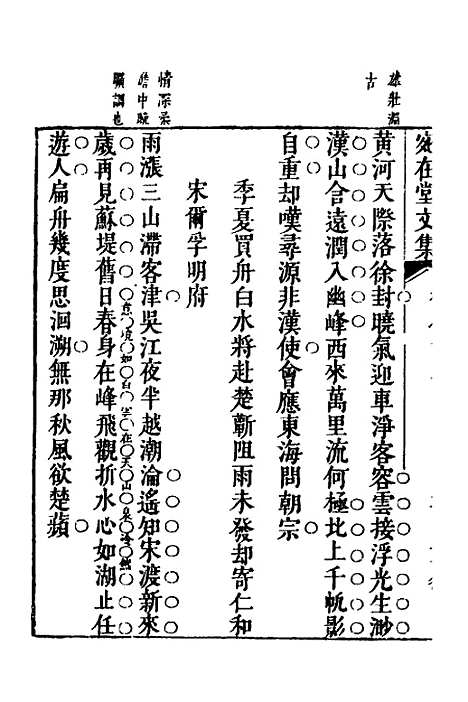 雄壯渾
古
宛在堂文集
黄河天際落徐封曉氣迎車淨客容雲接浮光生渺
漢山含遠潤入幽峰西來萬里流何極北上千帆影
自重却嘆尋源非漢使會應東海問朝宗
季夏買舟白水將赴楚蘄阻雨未發却寄仁和
宋爾孚明府
情深
中
調也
雨漲三山滯客津吳江夜半越潮淪遙知宋渡新來
歲再見蘇堤舊日春身在峰飛觀折水心如湖止任
遊人扁舟幾度思洄溯無那秋風欲楚蘋